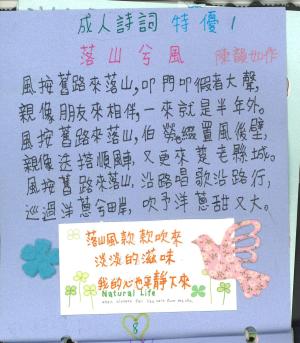 成人詩詞 特優 1
落山兮風 陳韻如作
風按舊路來落山，叩門叩假者大聲，
親像朋友來相伴，一來就是半年外。
風按舊路來落山，伯勞綴置風後壁，
親像送搭順風車，又更來楚老縣城。
風按舊路來落山，沿路唱歌沿路行，
巡過洋蔥合田岸，吹予洋蔥甜又大。
落山風款款吹來
淡淡的滋味
我的心也平靜下來
Natural Life
8